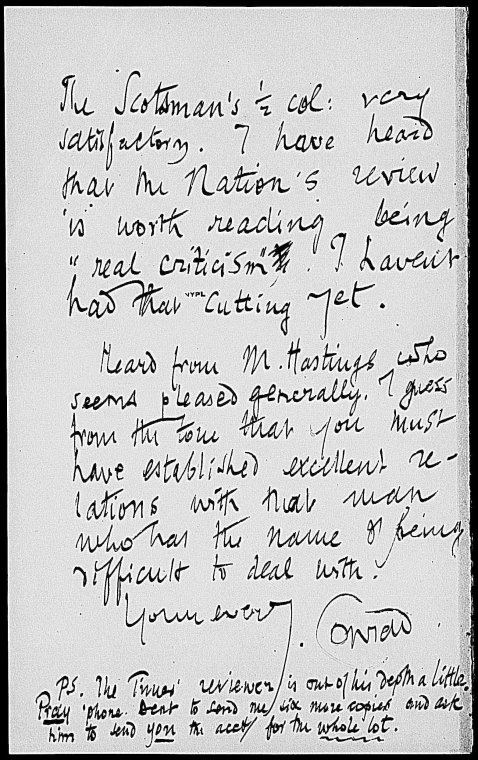 The Scotsman's ½ col: very
satisfactory. I have heard
that the Nation's review
is worth reading being
"real criticism". I havent
had that cutting yet.
NYPL
Heard from M. Hastings who
seems pleased generally. I guess
from the tone that you must
have established excellent re-
lations with that man
who has the name of being
difficult to deal with.
Yours ever
J. Conrad
PS. The Times' reviewer is out of his depth a little.
Pray 'phone Dent to send me six more copies and ask
him to send you the acct for the whole lot.